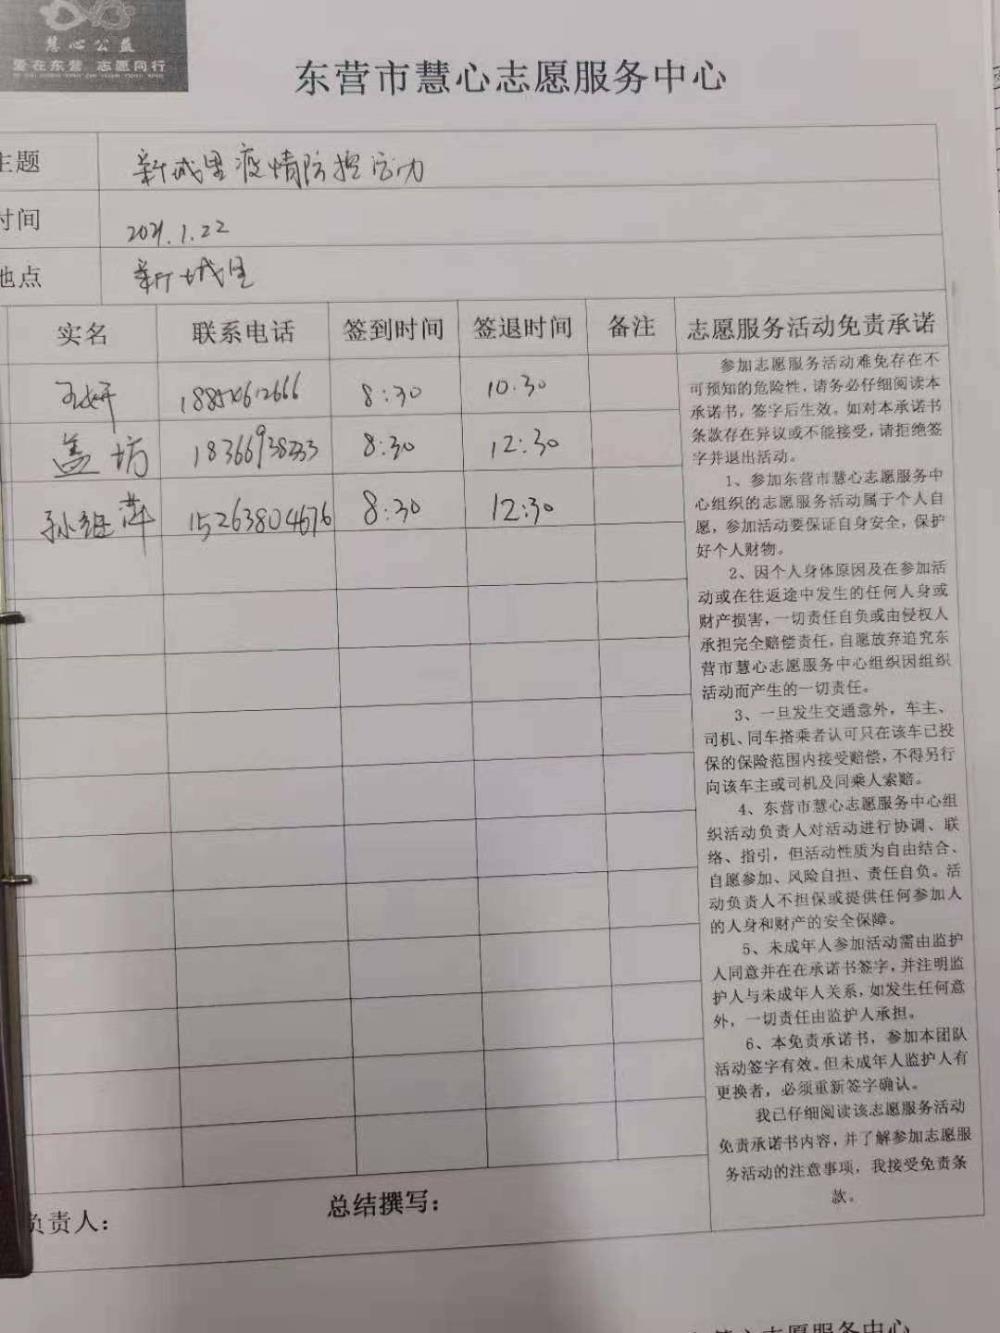 慧心公益
爱在东营 志愿同行
东营市慧心志愿服务中心
主题 新城里疫情防控活动
时间 2021.1.22
地点 新城里
实名 联系电话 签到时间 签退时间 备注 志愿服务活动免责承诺
王妍 8:30 10:30
盖坊 18366938333 8:30 12:30
孙继萍 15263804676 8:30 12:30
参加志愿服务活动难免存在不
可预知的危险性，请务必仔细阅读本
承诺书，签字后生效。如对本承诺书
条款存在异议或不能接受，请拒绝签
字并退出活动。
1、参加东营市慧心志愿服务中
心组织的志愿服务活动属于个人自
愿，参加活动要保证自身安全，保护
好个人财物。
2、因个人身体原因及在参加活
动或在往返途中发生的任何人身或
财产损害，一切责任自负或由侵权人
承担完全赔偿责任，自愿放弃追究东
营市慧心志愿服务中心组织因组织
活动而产生的一切责任。
3、一旦发生交通意外，车主、
司机、同车搭乘者认可只在该车已投
保的保险范围内接受赔偿，不得另行
向该车主或司机及同乘人索赔。
4、东营市慧心志愿服务中心组
织活动负责人对活动进行协调、联
络、指引，但活动性质为自由结合、
自愿参加、风险自担、责任自负。活
动负责人不担保或提供任何参加人
的人身和财产的安全保障。
5、未成年人参加活动需由监护
人同意并在在承诺书签字，并注明监
护人与未成年人关系，如发生任何意
外，一切责任由监护人承担。
6、本免责承诺书，参加本团队
活动签字有效。但未成年人监护人有
更换者，必须重新签字确认。
我已仔细阅读该志愿服务活动
免责承诺书内容，并了解参加志愿服
务活动的注意事项，我接受免责条
款。
负责人： 总结撰写：
志愿服务中心